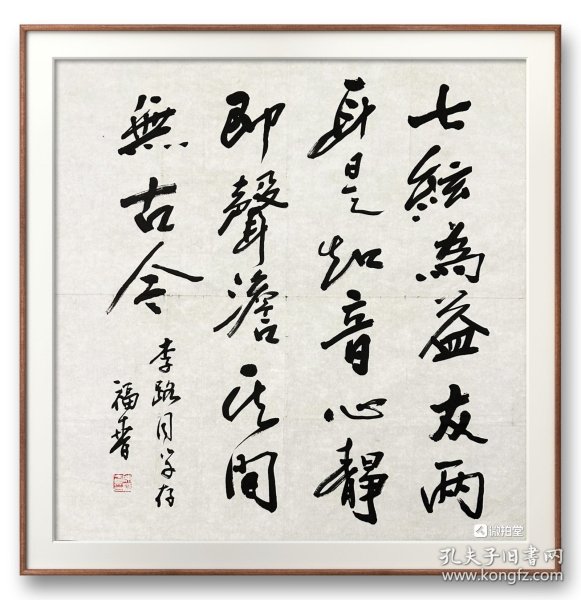 七絃為益友兩
耳是知音心靜
即聲澹其間
無古今
李路同学存
福香
微拍堂
孔夫子旧书网
www.kongfz.com